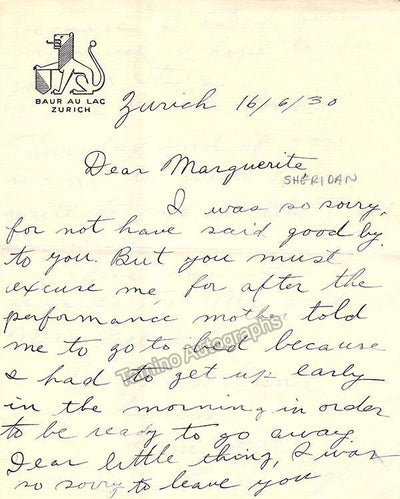 BAUR AU LAC
ZURICH
Zurich 16/6/30
Dear Marguerite,
SHERIDAN
I was so sorry,
for not have said good by
to you. But you must
excuse me for after the
performance mother told
me to go to bed because
I had to get up early
in the morning in order
to be ready to go away.
Dear little thing, I was
so sorry to leave you
Tamino Autographs